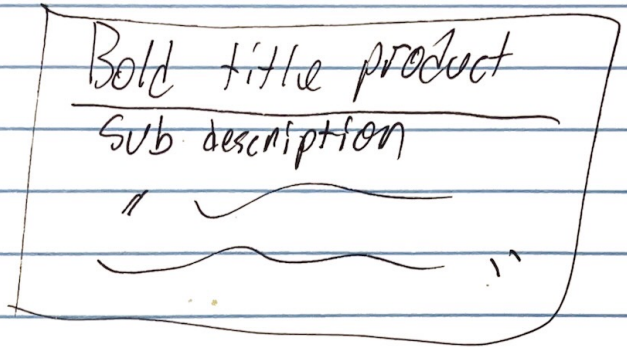 Bold title product
Sub description
"
"